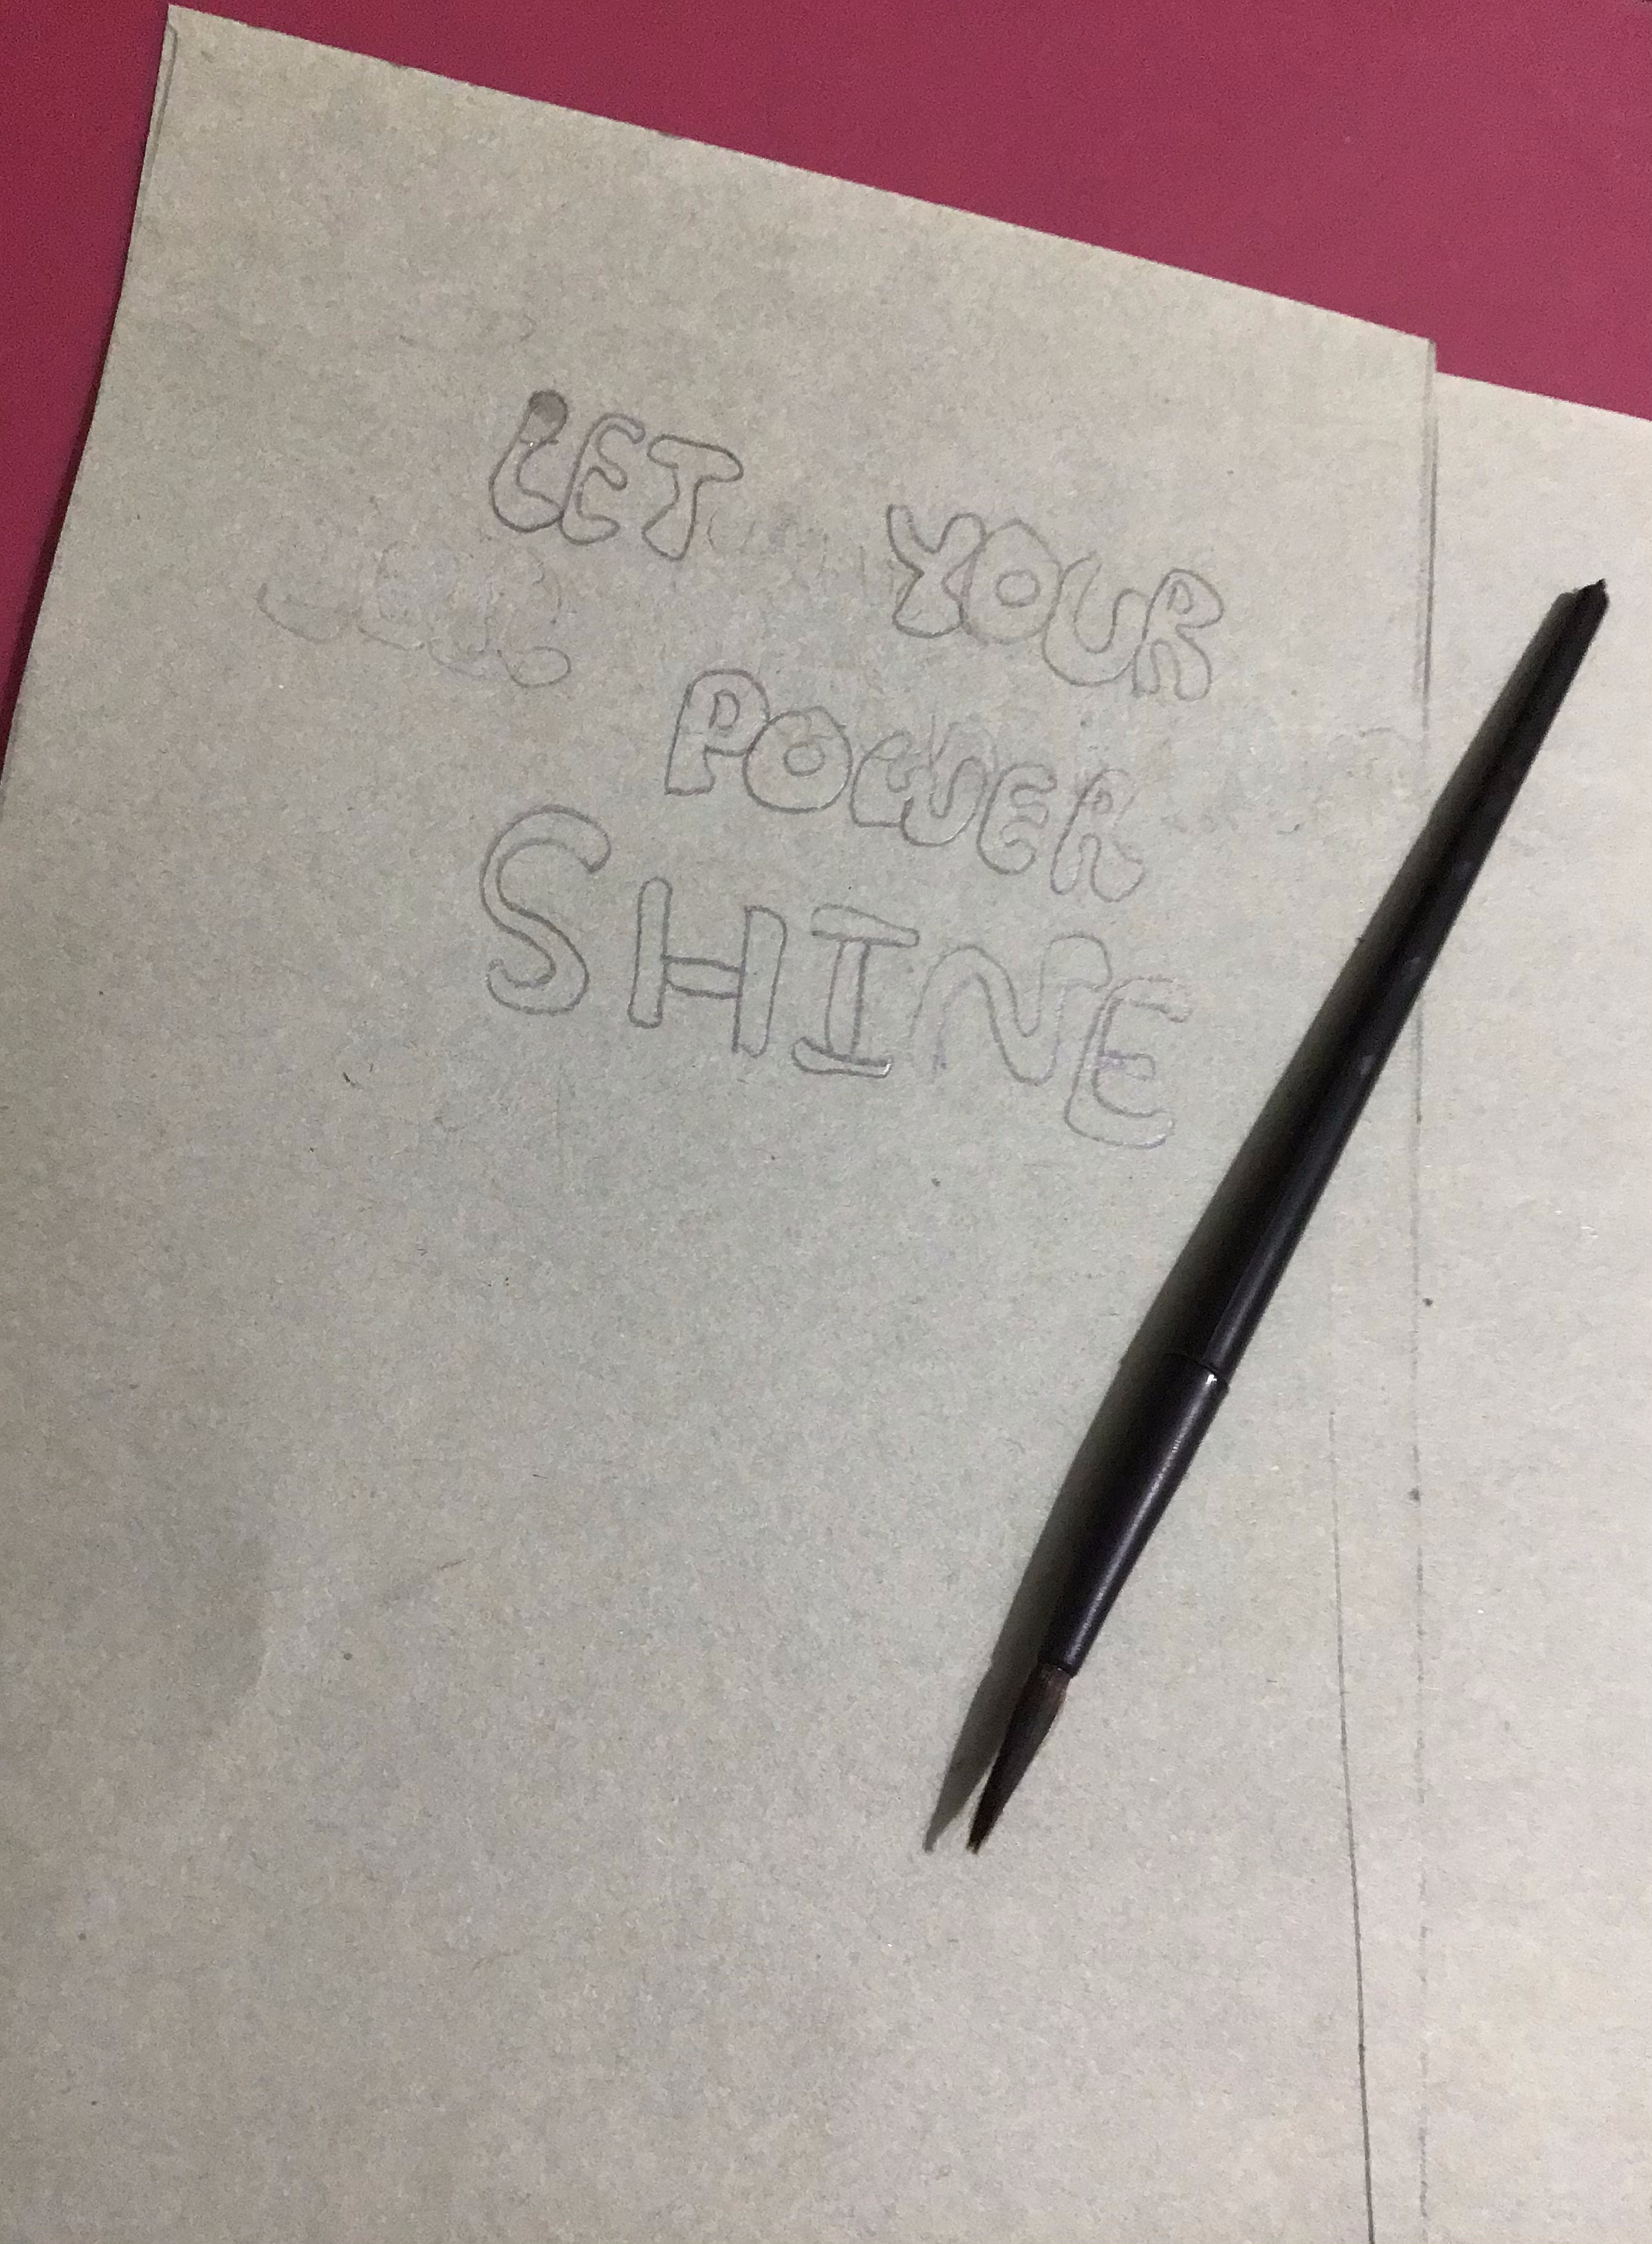 LET YOUR
POWER
SHINE